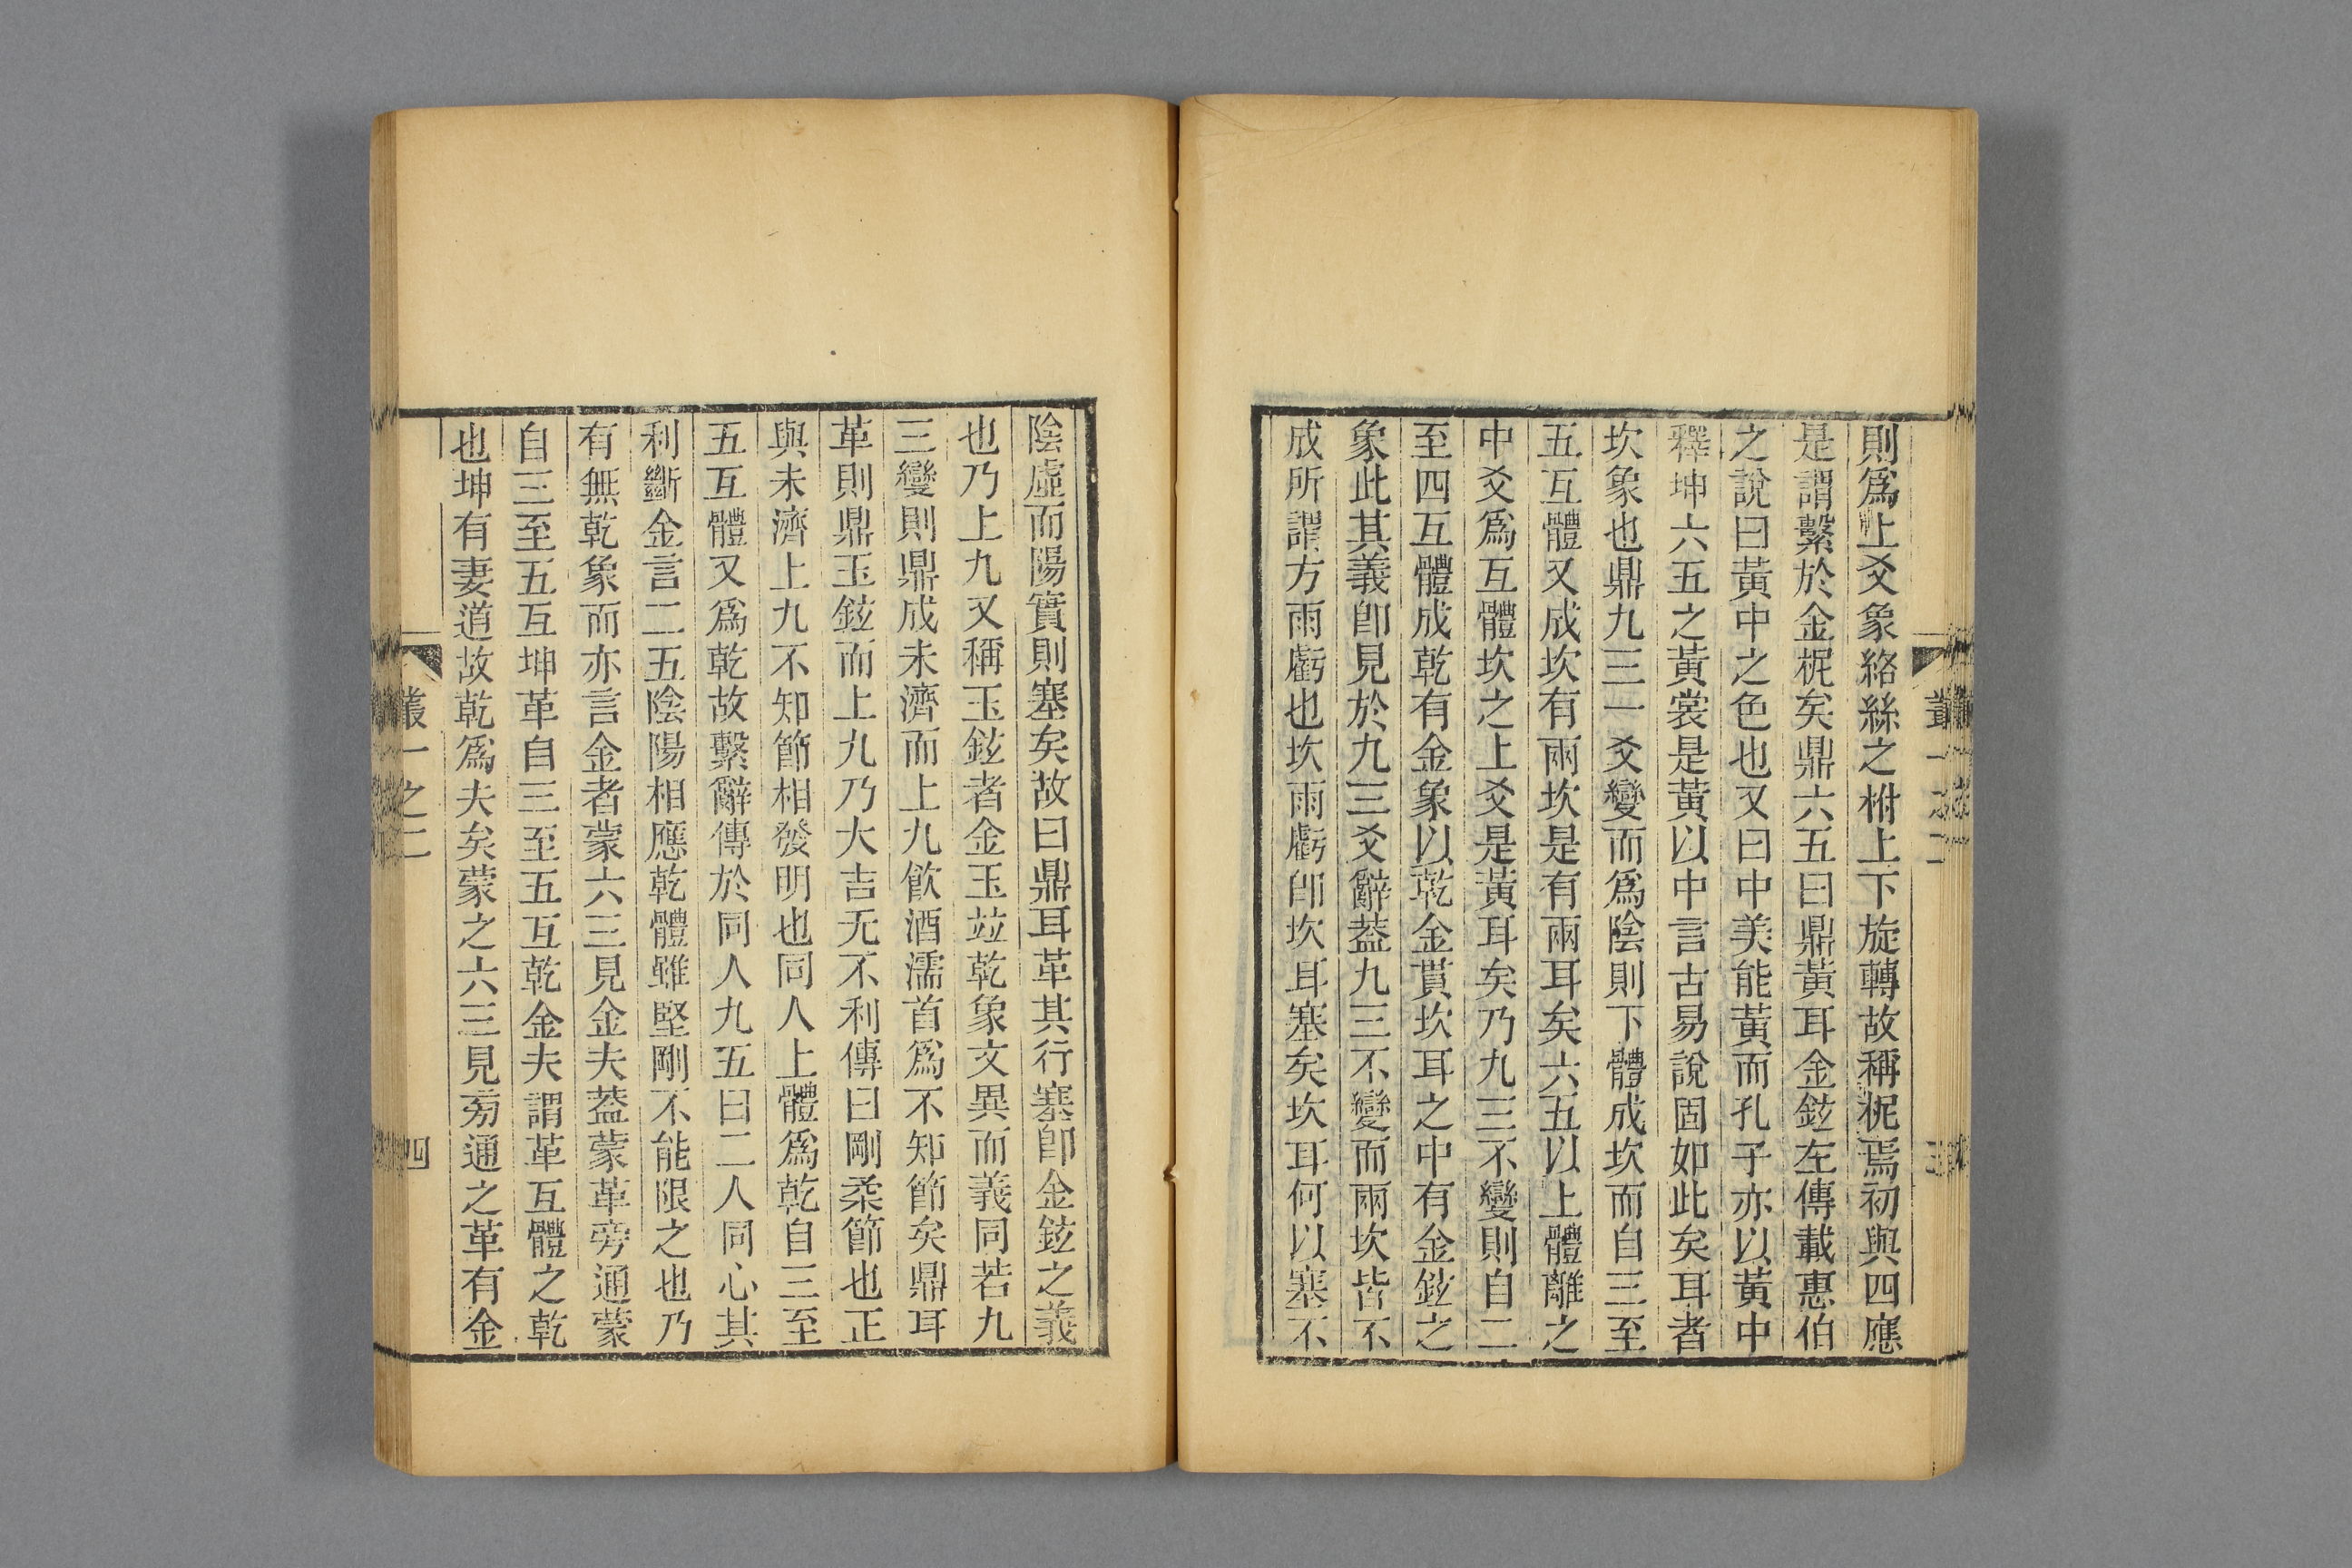 則爲上爻象絡絲之柎上下旋轉故稱柅焉初與四應
是謂繫於金柅矣鼎六五曰鼎黃耳金鉉左傳載惠伯
之說曰黃中之色也又曰中美能黃而孔子亦以黃中
釋坤六五之黃裳是黃以中言古易說固如此矣耳者
坎象也鼎九三一爻變而爲陰則下體成坎而自三至
五互體又成坎有兩坎是有兩耳矣六五以上體離之
中爻爲互體坎之上爻是黃耳矣乃九三不變則自二
至四互體成乾有金象以乾金貫坎耳之中有金鉉之
象此其義卽見於九三爻辭葢九三不變而兩坎皆不
成所謂方雨虧也坎雨虧卽坎耳塞矣坎耳何以塞不
陰虛而陽實則塞矣故曰鼎耳革其行塞卽金鉉之義
也乃上九又稱玉鉉者金玉竝乾象文異而義同若九
三變則鼎成未濟而上九飮酒濡首爲不知節矣鼎耳
革則鼎玉鉉而上九乃大吉无不利傳曰剛柔節也正
與未濟上九不知節相發明也同人上體爲乾自三至
五互體又爲乾故繫辭傳於同人九五曰二人同心其
利斷金言二五陰陽相應乾體雖堅剛不能限之也乃
有無乾象而亦言金者蒙六三見金夫葢蒙革旁通蒙
自三至五互坤革自三至五互乾金夫謂革互體之乾
也坤有妻道故乾爲夫矣蒙之六三見旁通之革有金
叢一之二
四